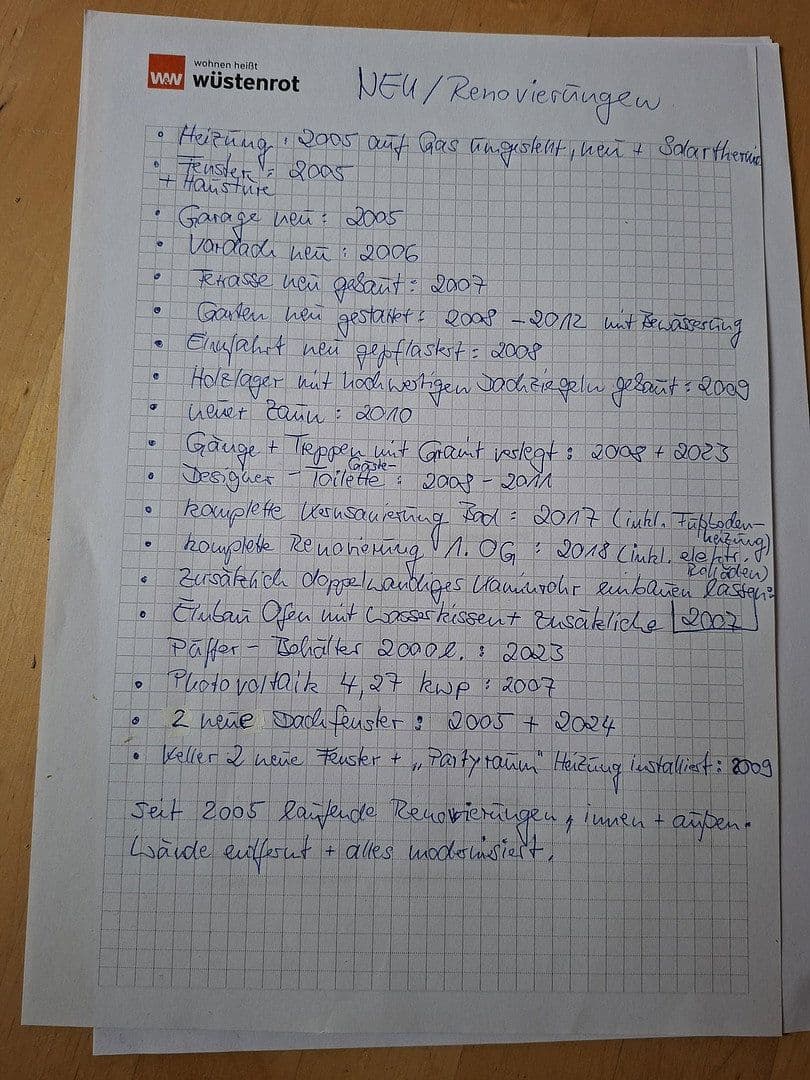 wohnen heißt
W&W wüstenrot
NEU / Renovierungen
• Heizung: 2005 auf Gas umgestellt, neu + Solarthermie
• Fenster: 2005
+ Haustüre
• Garage neu: 2005
• Vordach neu: 2006
• Terrasse neu gebaut: 2007
• Garten neu gestaltet: 2008 - 2012 mit Bewässerung
• Einfahrt neu gepflastert: 2008
• Holzlager mit hochwertigen Dachziegeln gebaut: 2009
• neuer Zaun: 2010
• Gänge + Treppen mit Granit verlegt: 2008 + 2023
• Designer - Gäste-Toilette: 2008 - 2011
• komplette Kernsanierung Bad: 2017 (inkl. Fußboden-
heizung)
• komplette Renovierung 1. OG: 2018 (inkl. elektr.
Rolläden)
• Zusätzlich doppelwandiges Kaminrohr einbauen lassen:
2007
• Einbau Ofen mit Wasserkissen + zusätzliche
Puffer - Behälter 2000 l.: 2023
• Photovoltaik 4,27 kwp: 2007
• 2 neue Dachfenster: 2005 + 2024
• Keller 2 neue Fenster + „Partyraum" Heizung installiert: 2009
Seit 2005 laufende Renovierungen, innen + außen.
Wände entfernt + alles modernisiert.